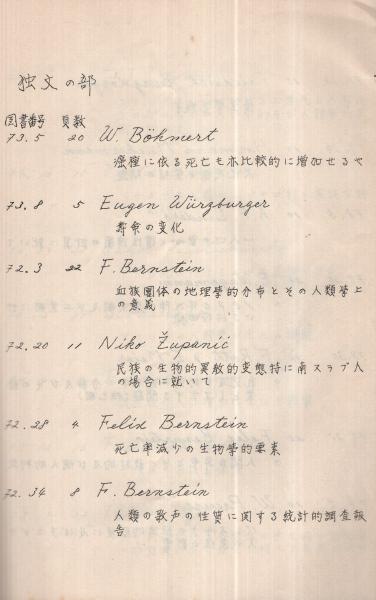 独文の部
図書番号 頁数
73.5 20 W. Böhmert
癌腫に依る死亡も亦比較的に増加せるや
73.8 5 Eugen Würzburger
寿命の変化
72.3 22 F. Bernstein
血族團体の地理學的分布とその人類學上
の意義
72.20 11 Niko Županić
民族の生物的異数的変態特に南スラブ人
の場合に就いて
72.28 4 Felix Bernstein
死亡率減少の生物學的要素
72.34 8 F. Bernstein
人類の歌声の性質に関する統計的調査報
告